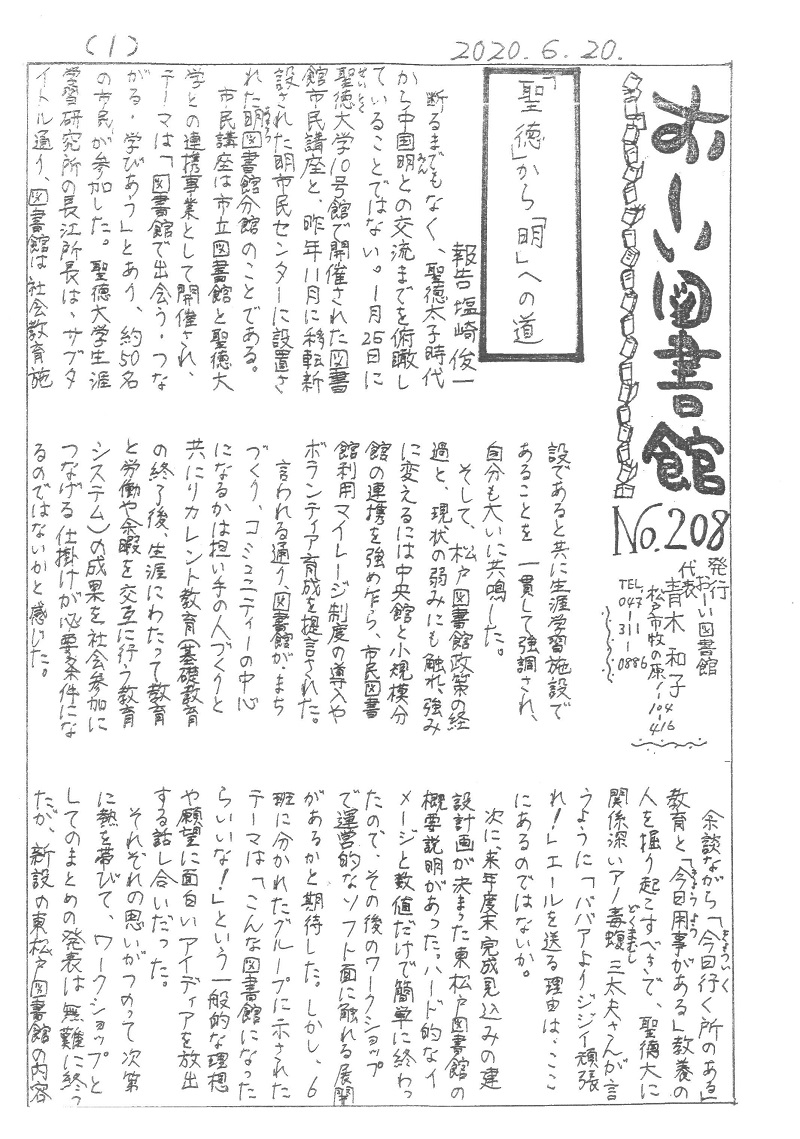 (1)
2020.6.20.
おーい図書館
No.208
発行
おーい図書館
代表
青木 和子
松戸市牧の原1-104-416
TEL
047-
311-
0886
「聖徳」から「明」への道
報告 塩崎 俊一
断るまでもなく、聖徳太子時代
から中国明との交流までを俯瞰し
ていることではない。1月25日に
聖徳大学10号館で開催された図書
館市民講座と、昨年11月に移転新
設された明市民センターに設置さ
れた明図書館分館のことである。
市民講座は市立図書館と聖徳大
学との連携事業として開催され、
テーマは「図書館で出会う・つな
がる・学びあう」とあり、約50名
の市民が参加した。聖徳大学生涯
学習研究所の長江所長は、サブタ
イトル通り、図書館は社会教育施
設であると共に生涯学習施設で
あることを一貫して強調され、
自分も大いに共鳴した。
そして、松戸図書館政策の経
過と、現状の弱みにも触れ、強み
に変えるには中央館と小規模分
館の連携を強め乍ら、市民図書
館利用マイレージ制度の導入や
ボランティア育成を提言された。
言われる通り、図書館がまち
づくり、コミュニティーの中心
になるかは担い手の人づくりと
共にリカレント教育(基礎教育
の終了後、生涯にわたって教育
と労働や余暇を交互に行う教育
システム)の成果を社会参加に
つなげる仕掛けが必要条件にな
るのではないかと感じた。
余談ながら「今日行く所のある」
教育と「今日用事がある」教養の
人を掘り起こすべきで、聖徳大に
関係深いアノ毒蝮三太夫さんが言
うように「ババアよりジジイ頑張
れ!」エールを送る理由は、ここ
にあるのではないか。
次に、来年度末完成見込みの建
設計画が決まった東松戸図書館の
概要説明があった。ハード的なイ
メージと数値だけで簡単に終わっ
たので、その後のワークショップ
で運営的なソフト面に触れる展開
があるかと期待した。しかし、6
班に分かれたグループに示された
テーマは「こんな図書館になった
らいいな!」という一般的な理想
や願望に面白いアイディアを放出
する話し合いだった。
それぞれの思いがつのって次第
に熱を帯びて、ワークショップと
してのまとめの発表は無難に終っ
たが、新設の東松戸図書館の内容